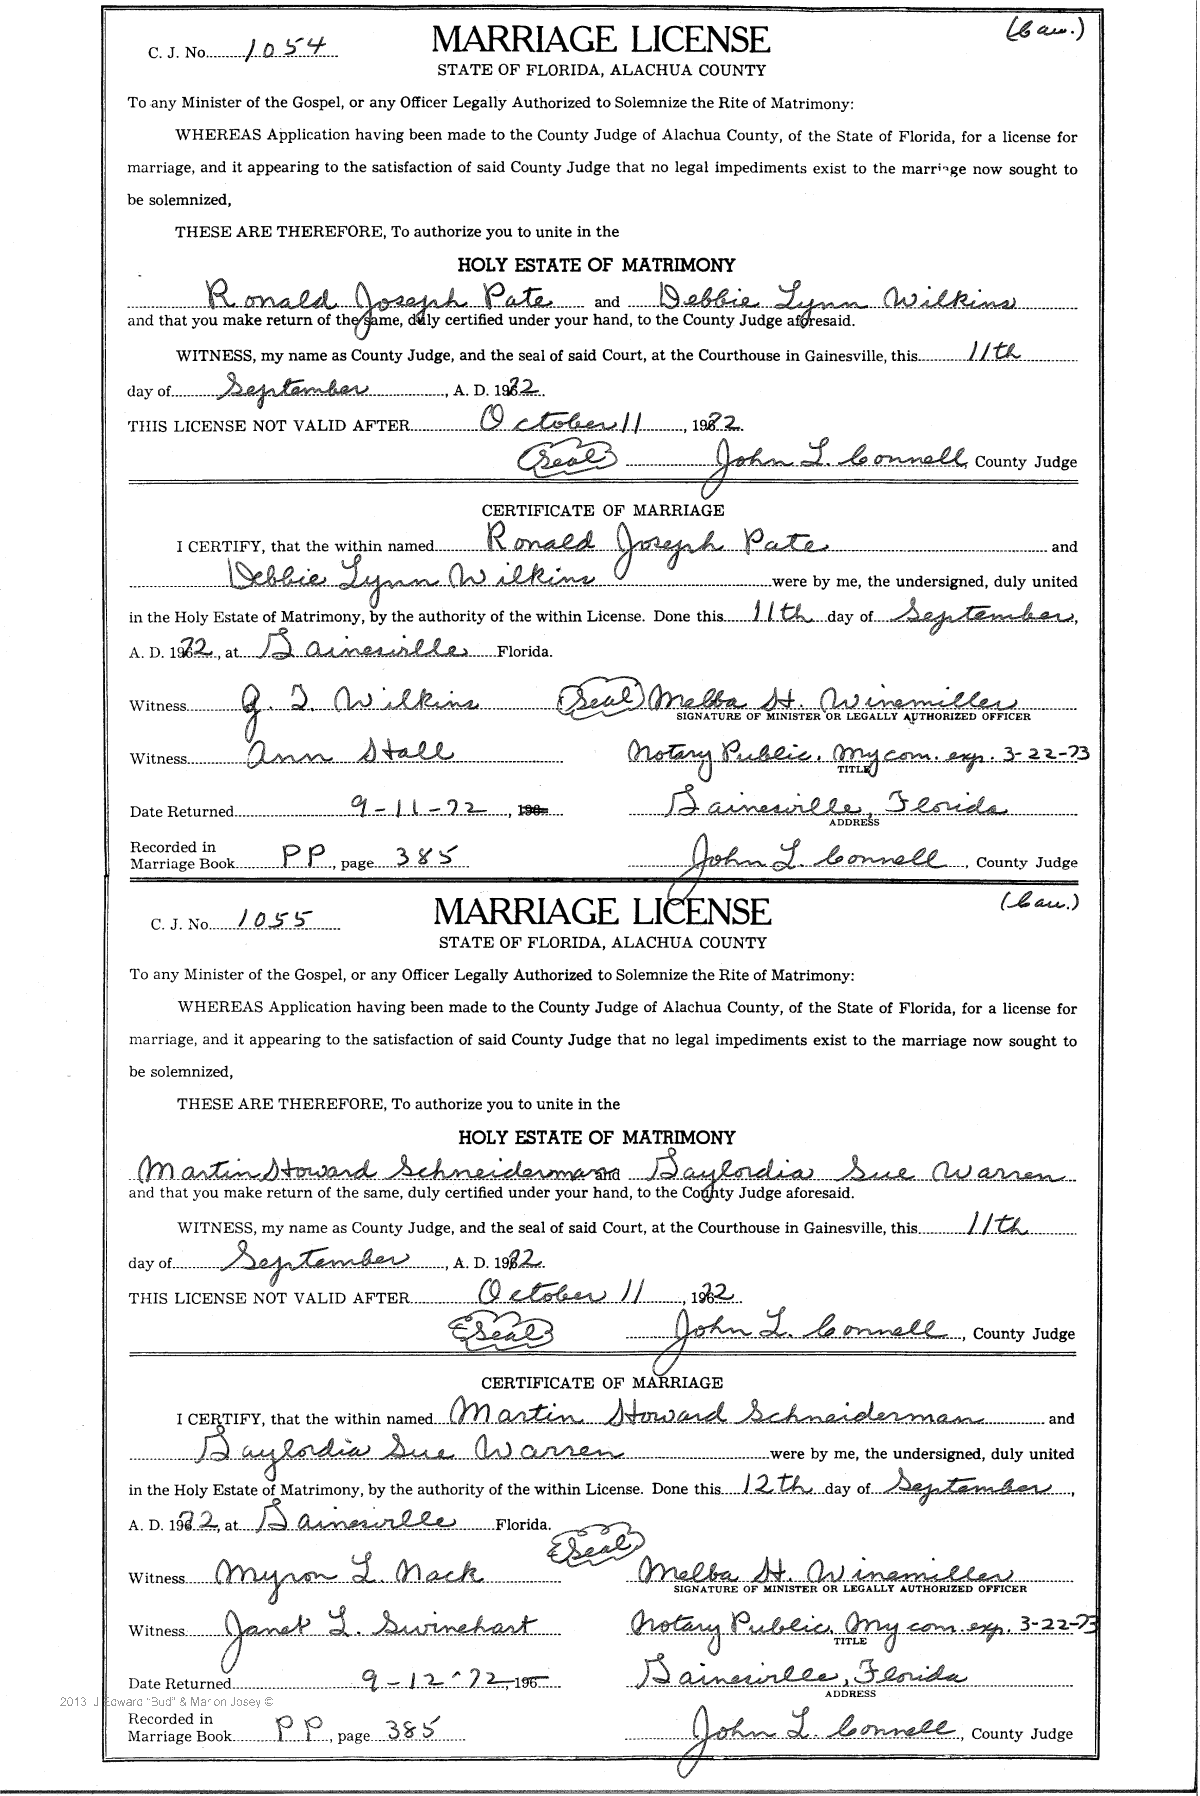 C. J. No. 1054 MARRIAGE LICENSE (Cau.)
STATE OF FLORIDA, ALACHUA COUNTY
To any Minister of the Gospel, or any Officer Legally Authorized to Solemnize the Rite of Matrimony:
WHEREAS Application having been made to the County Judge of Alachua County, of the State of Florida, for a license for
marriage, and it appearing to the satisfaction of said County Judge that no legal impediments exist to the marriage now sought to
be solemnized,
THESE ARE THEREFORE, To authorize you to unite in the
HOLY ESTATE OF MATRIMONY
Ronald Joseph Pate and Debbie Lynn Wilkins
and that you make return of the same, duly certified under your hand, to the County Judge aforesaid.
WITNESS, my name as County Judge, and the seal of said Court, at the Courthouse in Gainesville, this 11th
day of September, A. D. 1972.
THIS LICENSE NOT VALID AFTER October 11, 1972.
(Seal) John L. Connell, County Judge
CERTIFICATE OF MARRIAGE
I CERTIFY, that the within named Ronald Joseph Pate and
Debbie Lynn Wilkins were by me, the undersigned, duly united
in the Holy Estate of Matrimony, by the authority of the within License. Done this 11th day of September,
A. D. 1972, at Gainesville Florida.
Witness G. T. Wilkins (Seal) Melba H. Winemiller
SIGNATURE OF MINISTER OR LEGALLY AUTHORIZED OFFICER
Witness Ann Stall Notary Public. My com. exp. 3-22-73
TITLE
Date Returned 9-11-72, 196 Gainesville, Florida
ADDRESS
Recorded in
Marriage Book PP, page 385 John L. Connell, County Judge
C. J. No. 1055 MARRIAGE LICENSE (Cau.)
STATE OF FLORIDA, ALACHUA COUNTY
To any Minister of the Gospel, or any Officer Legally Authorized to Solemnize the Rite of Matrimony:
WHEREAS Application having been made to the County Judge of Alachua County, of the State of Florida, for a license for
marriage, and it appearing to the satisfaction of said County Judge that no legal impediments exist to the marriage now sought to
be solemnized,
THESE ARE THEREFORE, To authorize you to unite in the
HOLY ESTATE OF MATRIMONY
Martin Howard Schneiderman and Gaylordia Sue Warren
and that you make return of the same, duly certified under your hand, to the County Judge aforesaid.
WITNESS, my name as County Judge, and the seal of said Court, at the Courthouse in Gainesville, this 11th
day of September, A. D. 1972.
THIS LICENSE NOT VALID AFTER October 11, 1972.
(Seal) John L. Connell, County Judge
CERTIFICATE OF MARRIAGE
I CERTIFY, that the within named Martin Howard Schneiderman and
Gaylordia Sue Warren were by me, the undersigned, duly united
in the Holy Estate of Matrimony, by the authority of the within License. Done this 12th day of September,
A. D. 1972, at Gainesville Florida.
Witness Myron L. Nack (Seal) Melba H. Winemiller
SIGNATURE OF MINISTER OR LEGALLY AUTHORIZED OFFICER
Witness Janet L. Swinehart Notary Public. My com. exp. 3-22-73
TITLE
Date Returned 9-12-72, 196 Gainesville, Florida
ADDRESS
2013 J Edward "Bud" & Marion Josey ©
Recorded in
Marriage Book PP, page 385 John L. Connell, County Judge